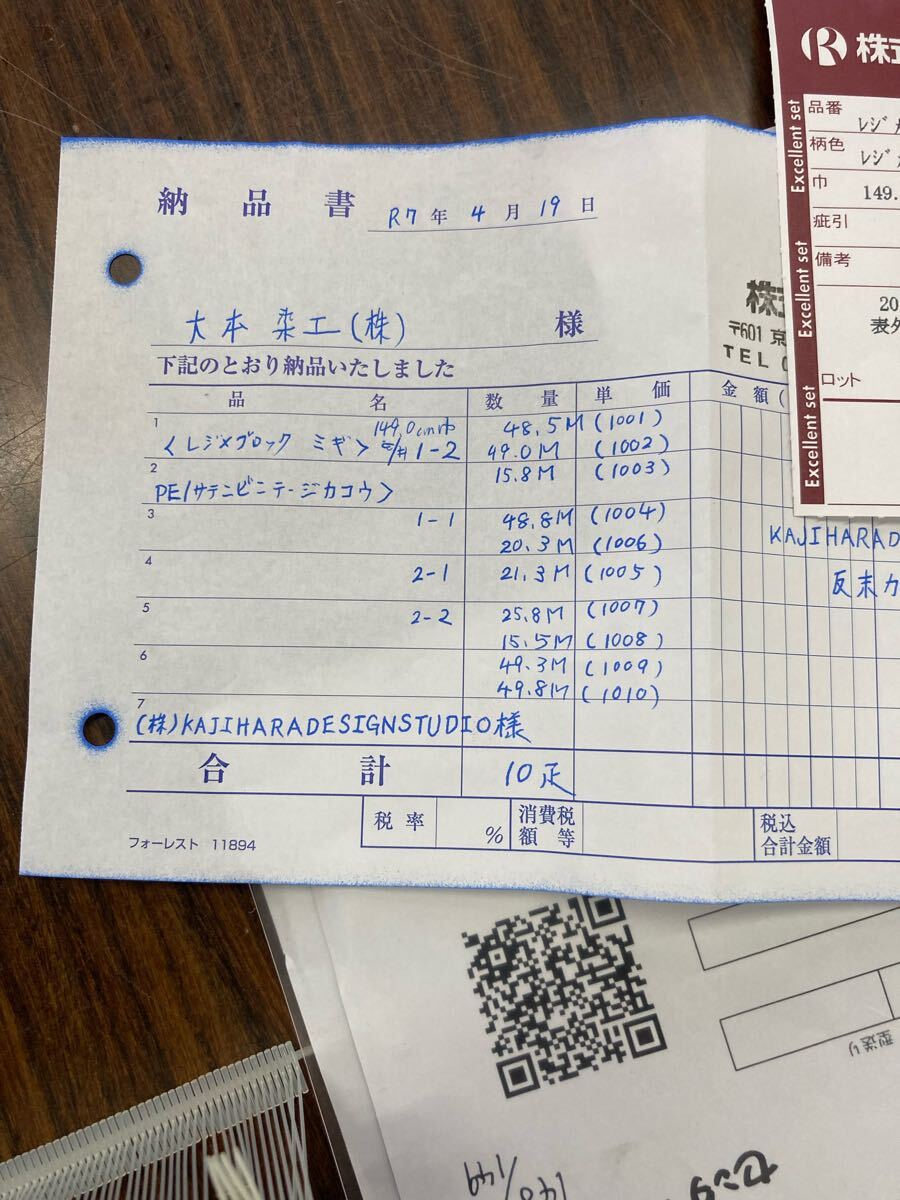 納品書 R7年4月19日
大本染工(株) 様
下記のとおり納品いたしました
品名 数量 単価 金額(
1 149.0cm巾 48.5M (1001)
<レジメブロック ミギ> 1-2 49.0M (1002)
2 15.8M (1003)
PE/サテンビンテージカコウ>
3 1-1 48.8M (1004)
20.3M (1006)
4 2-1 21.3M (1005)
5 2-2 25.8M (1007)
15.5M (1008)
6 49.3M (1009)
49.8M (1010)
7
(株)KAJIHARADESIGNSTUDIO様
合計 10疋
税率 % 消費税額等 税込合計金額
フォーレスト 11894
株式
〒601 京
TEL
KAJIHARAD
反末カ
R 株式
Excellent set
品番 レジメ
柄色 レジメ
巾 149.
疵引
Excellent set
備考
20
表外
ロット
Excellent set
型送り
148/149
センタ